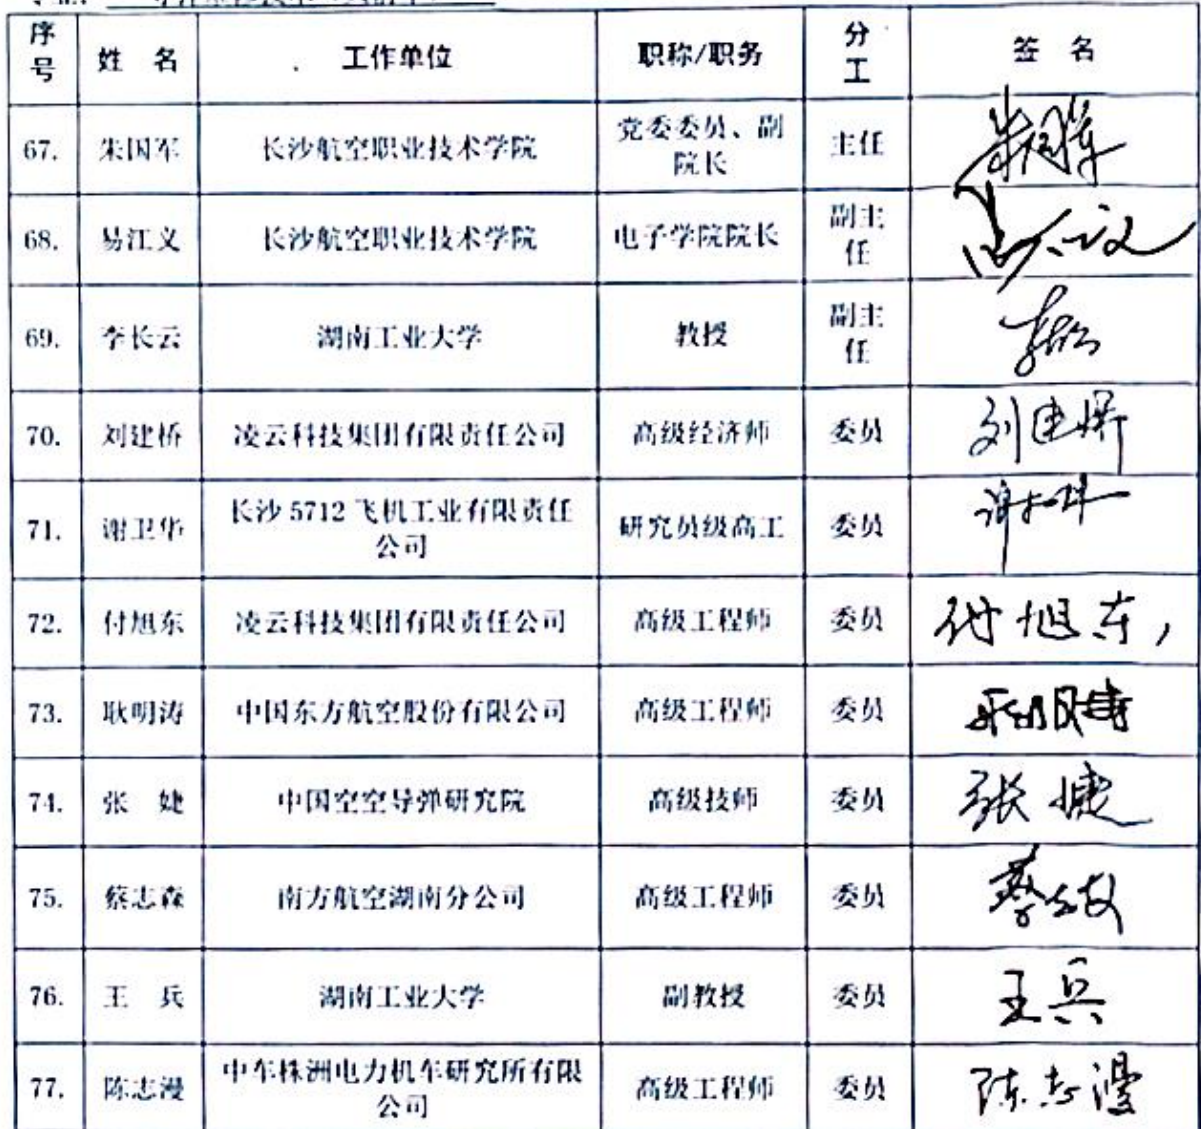 序号 姓 名 工作单位 职称/职务 分工 签 名
67. 朱国军 长沙航空职业技术学院 党委委员、副院长 主任 朱国军
68. 易江义 长沙航空职业技术学院 电子学院院长 副主任
69. 李长云 湖南工业大学 教授 副主任
70. 刘建桥 凌云科技集团有限责任公司 高级经济师 委员 刘建桥
71. 谢卫华 长沙 5712 飞机工业有限责任公司 研究员级高工 委员
72. 付旭东 凌云科技集团有限责任公司 高级工程师 委员 付旭东,
73. 耿明涛 中国东方航空股份有限公司 高级工程师 委员
74. 张 婕 中国空空导弹研究院 高级技师 委员 张婕
75. 蔡志森 南方航空湖南分公司 高级工程师 委员
76. 王 兵 湖南工业大学 副教授 委员 王兵
77. 陈志漫 中车株洲电力机车研究所有限公司 高级工程师 委员 陈志漫